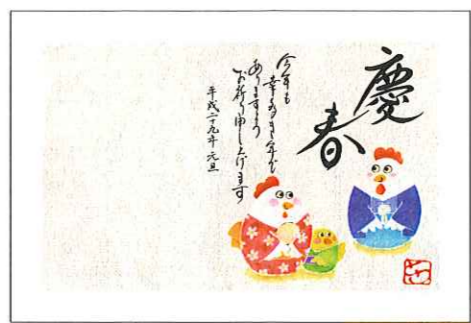 慶春
今年も
幸多き年で
ありますよう
お祈り申し上げます
平成二十九年 元旦